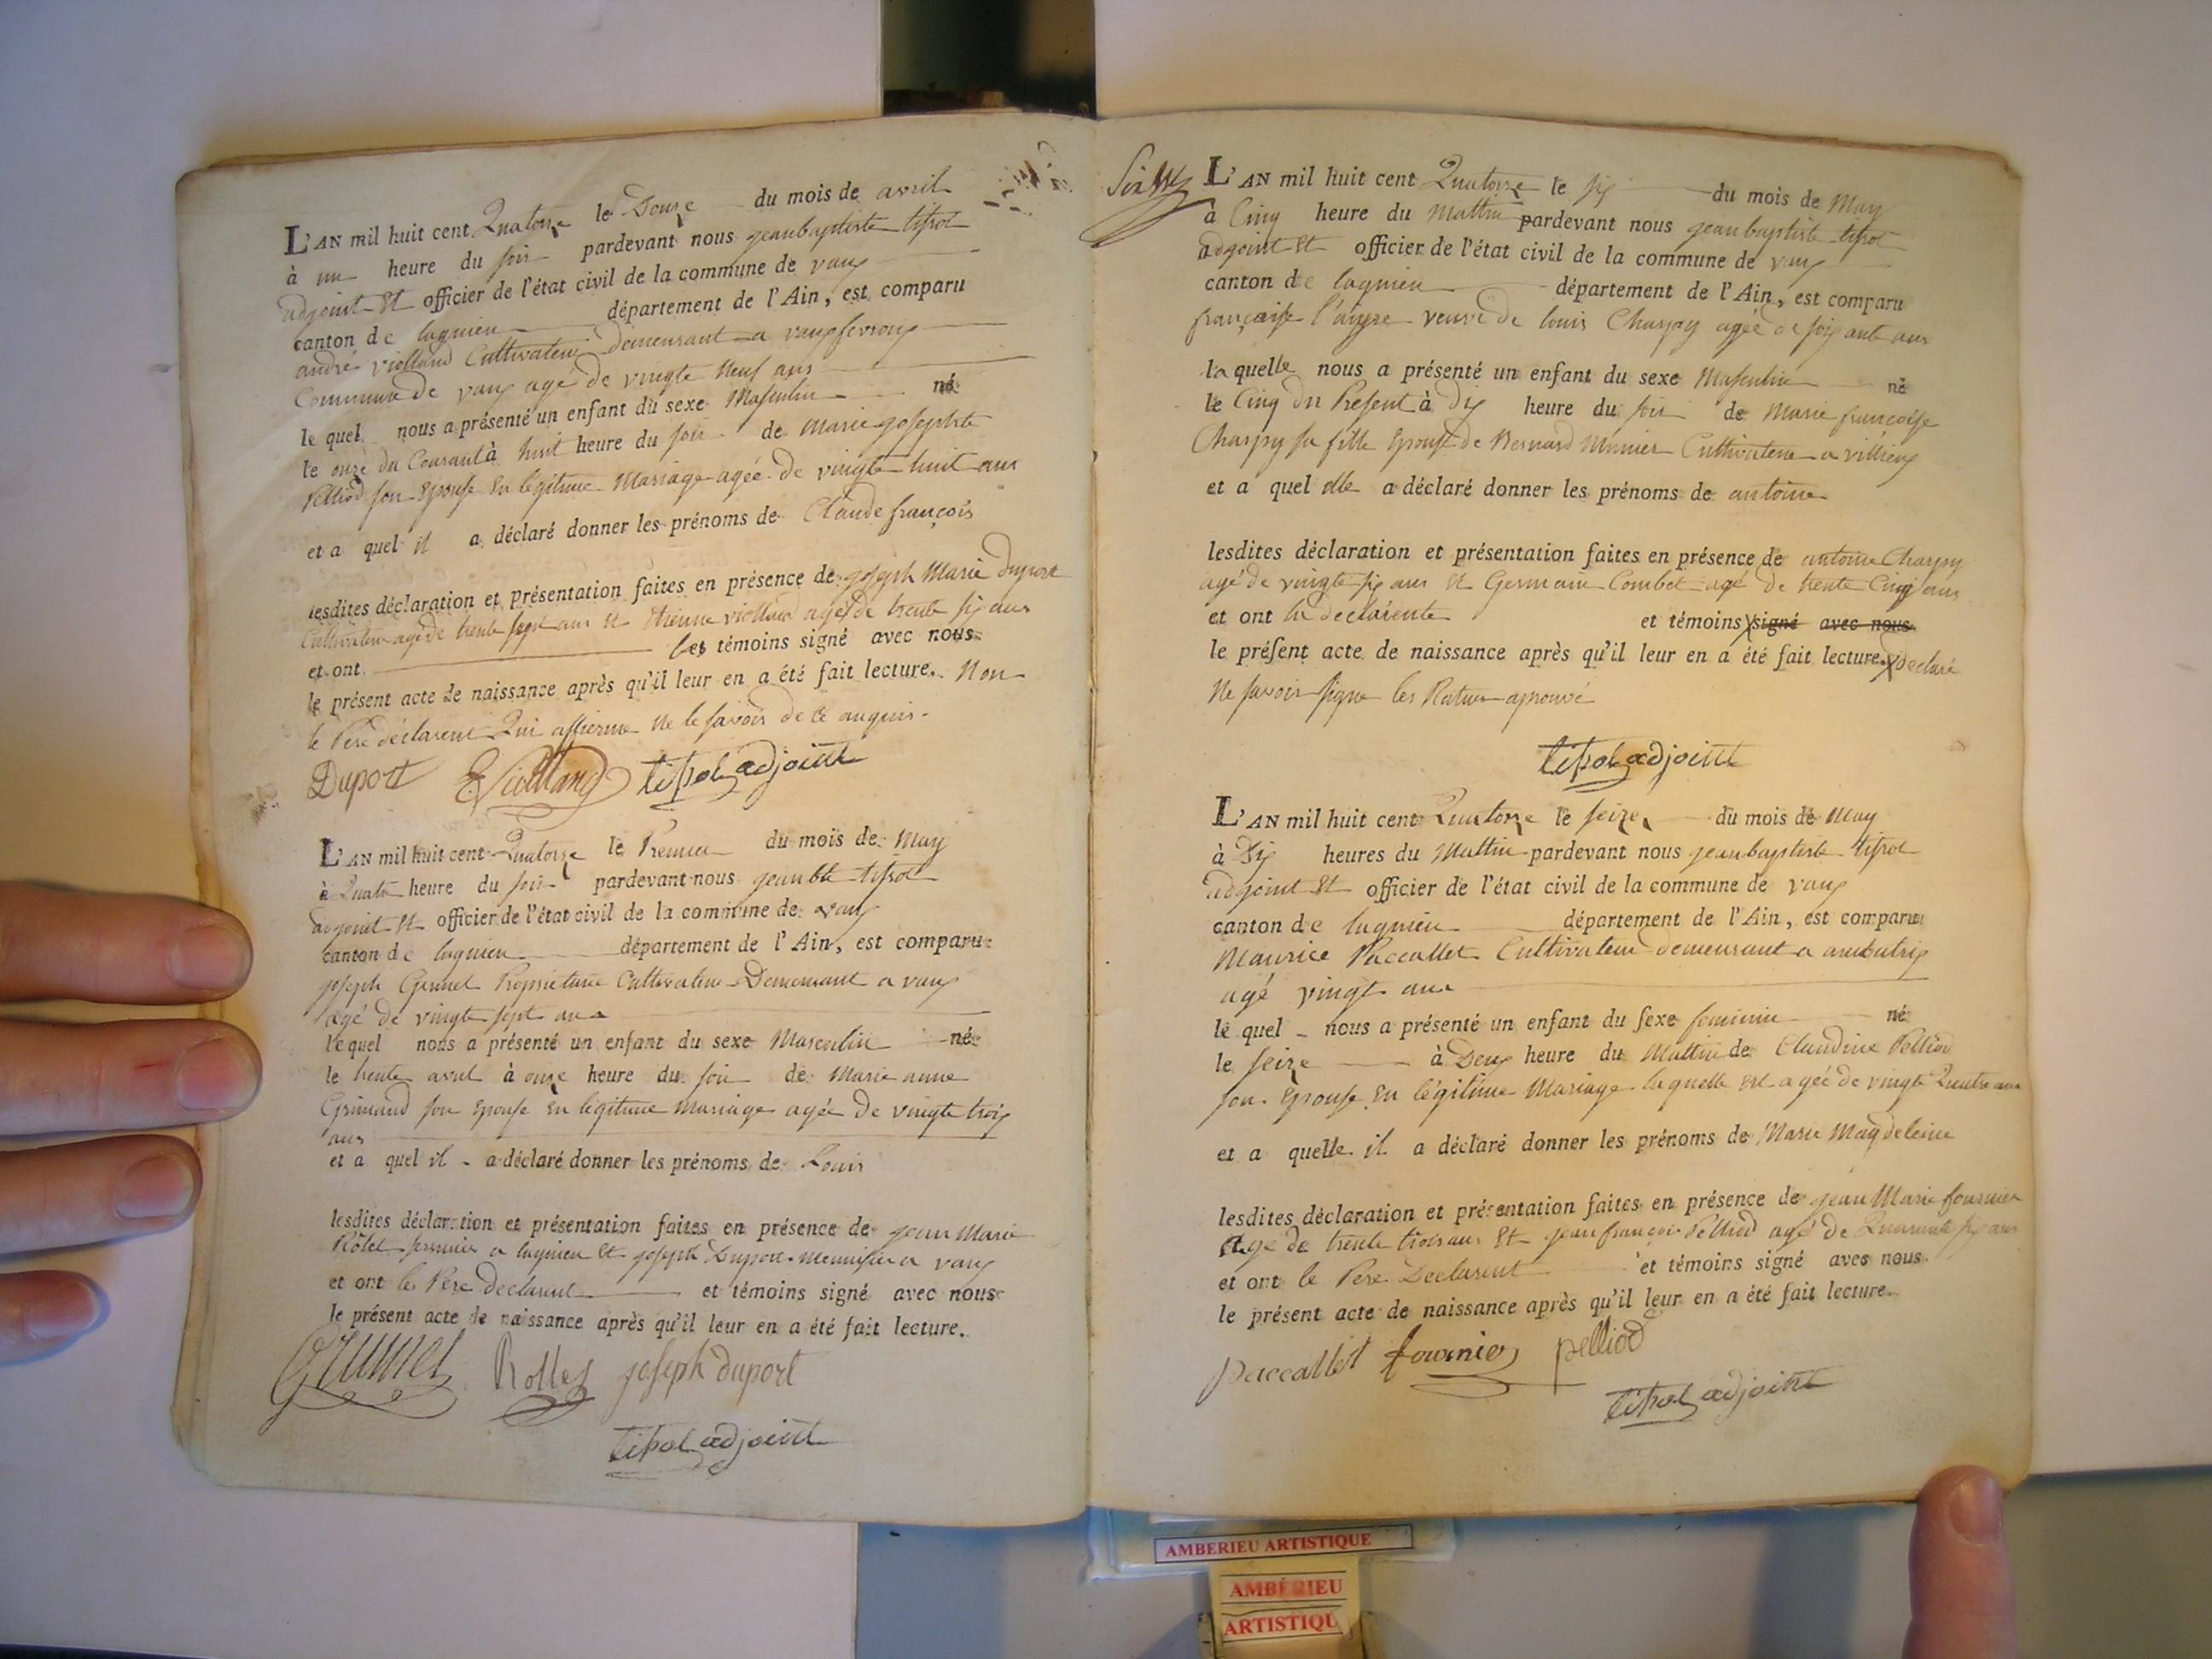 L'AN mil huit cent Quatorze le Douze du mois de avril
à un heure du soir pardevant nous jean baptiste tissot
adjoint Et officier de l'état civil de la commune de vaux
canton de lagnieu département de l'Ain, est comparu
andré violland Cultivateur demeurant a vauxfevroux
Commune de vaux agé de vingte Neuf ans
le quel nous a présenté un enfant du sexe Masculin né
le onze du Courant à huit heure du soir de Marie josephte
Pelliod son Epouse En légitime Mariage agée de vingte huit ans
et a quel il a déclaré donner les prénoms de Claude françois
lesdites déclaration et présentation faites en présence de joseph Marie duport
Cultivateur agé de trente sept ans Et Etienne viollan agé de trente six ans
et ont les témoins signé avec nous
le présent acte de naissance après qu'il leur en a été fait lecture. Non
le Père déclarent Qui affierme Ne le savoir de ce
Duport E Violland tissot adjoint
L'AN mil huit cent Quatorze le Premier du mois de May
à Quatre heure du soir pardevant nous jean bte tissot
adjoint Et officier de l'état civil de la commune de vaux
canton de lagnieu département de l'Ain, est comparu
joseph Grumel Propriétaire Cultivateur Demeurant a vaux
agé de vingte sept ans
le quel nous a présenté un enfant du sexe Masculin né
le trente avril à onze heure du soir de Marie anne
Grimaud son Epouse En légitime Mariage agée De vingte trois
ans
et a quel il a déclaré donner les prénoms de Louis
lesdites déclaration et présentation faites en présence de jean Marie
Rolet fermier a lagnieu Et joseph Duport Meunisier a vaux
et ont les Père Declarent et témoins signé avec nous
le présent acte de naissance après qu'il leur en a été fait lecture.
Grumel Rolles joseph duport
tissot adjoint
L'AN mil huit cent Quatorze le six du mois de May
à Cinq heure du Mattin pardevant nous jean baptiste tissot
adjoint Et officier de l'état civil de la commune de vaux
canton de lagnieu département de l'Ain, est comparu
françoise veuve de louis Charpy agée de soixante ans
la quelle nous a présenté un enfant du sexe Masculin né
le Cinq du Présent à Dix heure du soir de Marie françoise
Charpy sa fille Epouse de Bernard Munier Cultivateur a villieux
et a quel elle a déclaré donner les prénoms de antoine
lesdites déclaration et présentation faites en présence de antoine Charpy
agé de vingte six ans Et Germain Combet agé de trente Cinq ans
et ont la declarente et témoins signé avec nous
le présent acte de naissance après qu'il leur en a été fait lecture. declaré
Ne savoir signe les Rature aprouvé
tissot adjoint
L'AN mil huit cent Quatorze le seize du mois de May
à Dix heures du Mattin pardevant nous jean baptiste tissot
adjoint Et officier de l'état civil de la commune de vaux
canton de lagnieu département de l'Ain, est comparu
Maurice Paccallet Cultivateur demeurant a ambutrix
agé vingt ans
le quel nous a présenté un enfant du sexe feminin né
le seize à Deux heure du Mattin de Claudine Pelliod
son Epouse En légitime Mariage la quelle Est agée de vingte Quatre ans
et a quelle il a déclaré donner les prénoms de Marie Magdeleine
lesdites déclaration et présentation faites en présence de jean Marie fournier
Agé de trente trois ans Et jean françois Pelliod agé de Quarante six ans
et ont le Père Declarent et témoins signé avec nous
le présent acte de naissance après qu'il leur en a été fait lecture.
paccallet fournier pelliod
tissot adjoint
AMBERIEU ARTISTIQUE
AMBÉRIEU
ARTISTIQU